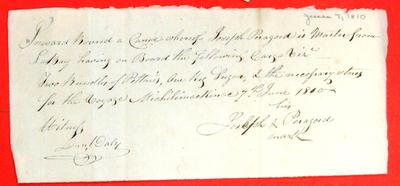 June 7, 1810
Inward Bound a Canoe whereof Joseph Paragord is Master from
having on Board the following Cargo Viz
Two Bundles of Peltries, One Keg Sugar, & the necessary stores
for the Voyage Michilimackinac 7th June 1810
his
Joseph X Paragord
mark
Witness
Danl Daly